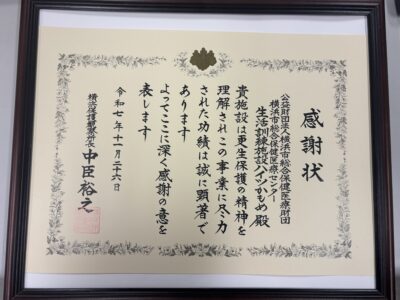 感謝状
公益財団法人横浜市総合保健医療財団
横浜市総合保健医療センター
生活訓練施設ハイツかもめ殿
貴施設は更生保護の精神を
理解されこの事業に尽力
された功績は誠に顕著で
あります
よってここに深く感謝の意を
表します
令和七年十一月二十六日
横浜保護観察所長 中臣裕之